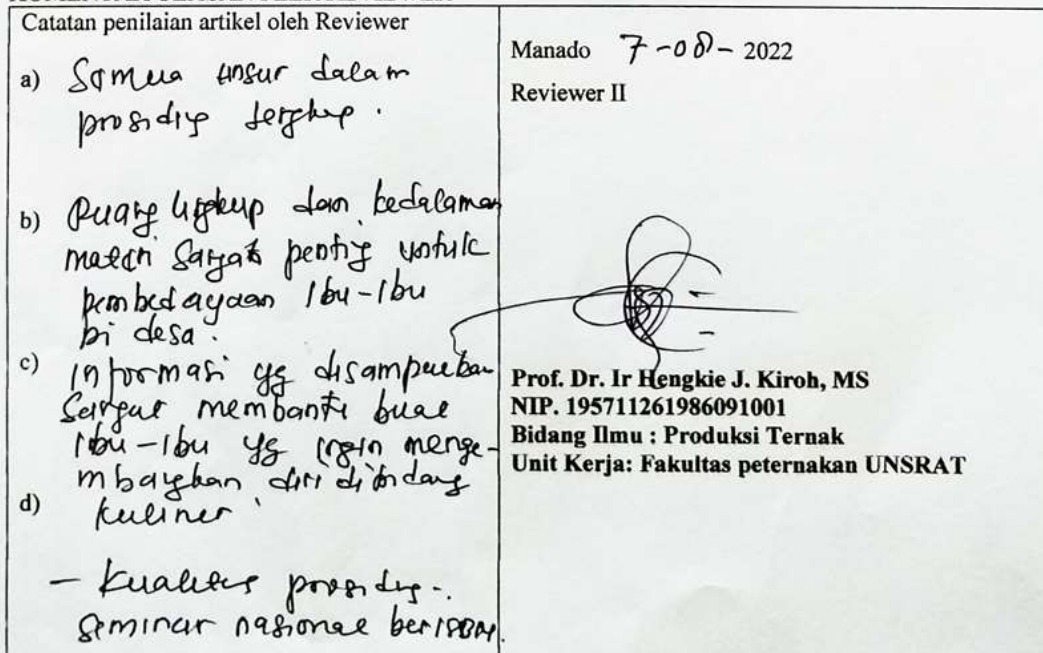 Catatan penilaian artikel oleh Reviewer
a) Semua unsur dalam
prosiding lengkap.
b) Ruang lingkup dan kedalaman
materi sangat penting untuk
pemberdayaan Ibu-Ibu
di desa.
c) informasi yg disampaikan
Sangat membantu buat
Ibu-Ibu yg ingin menge-
mbangkan diri di bidang
d) kuliner
- Kualitas prosiding.
Seminar nasional berISBN.
Manado 7-08-2022
Reviewer II
Prof. Dr. Ir Hengkie J. Kiroh, MS
NIP. 195711261986091001
Bidang Ilmu : Produksi Ternak
Unit Kerja: Fakultas peternakan UNSRAT